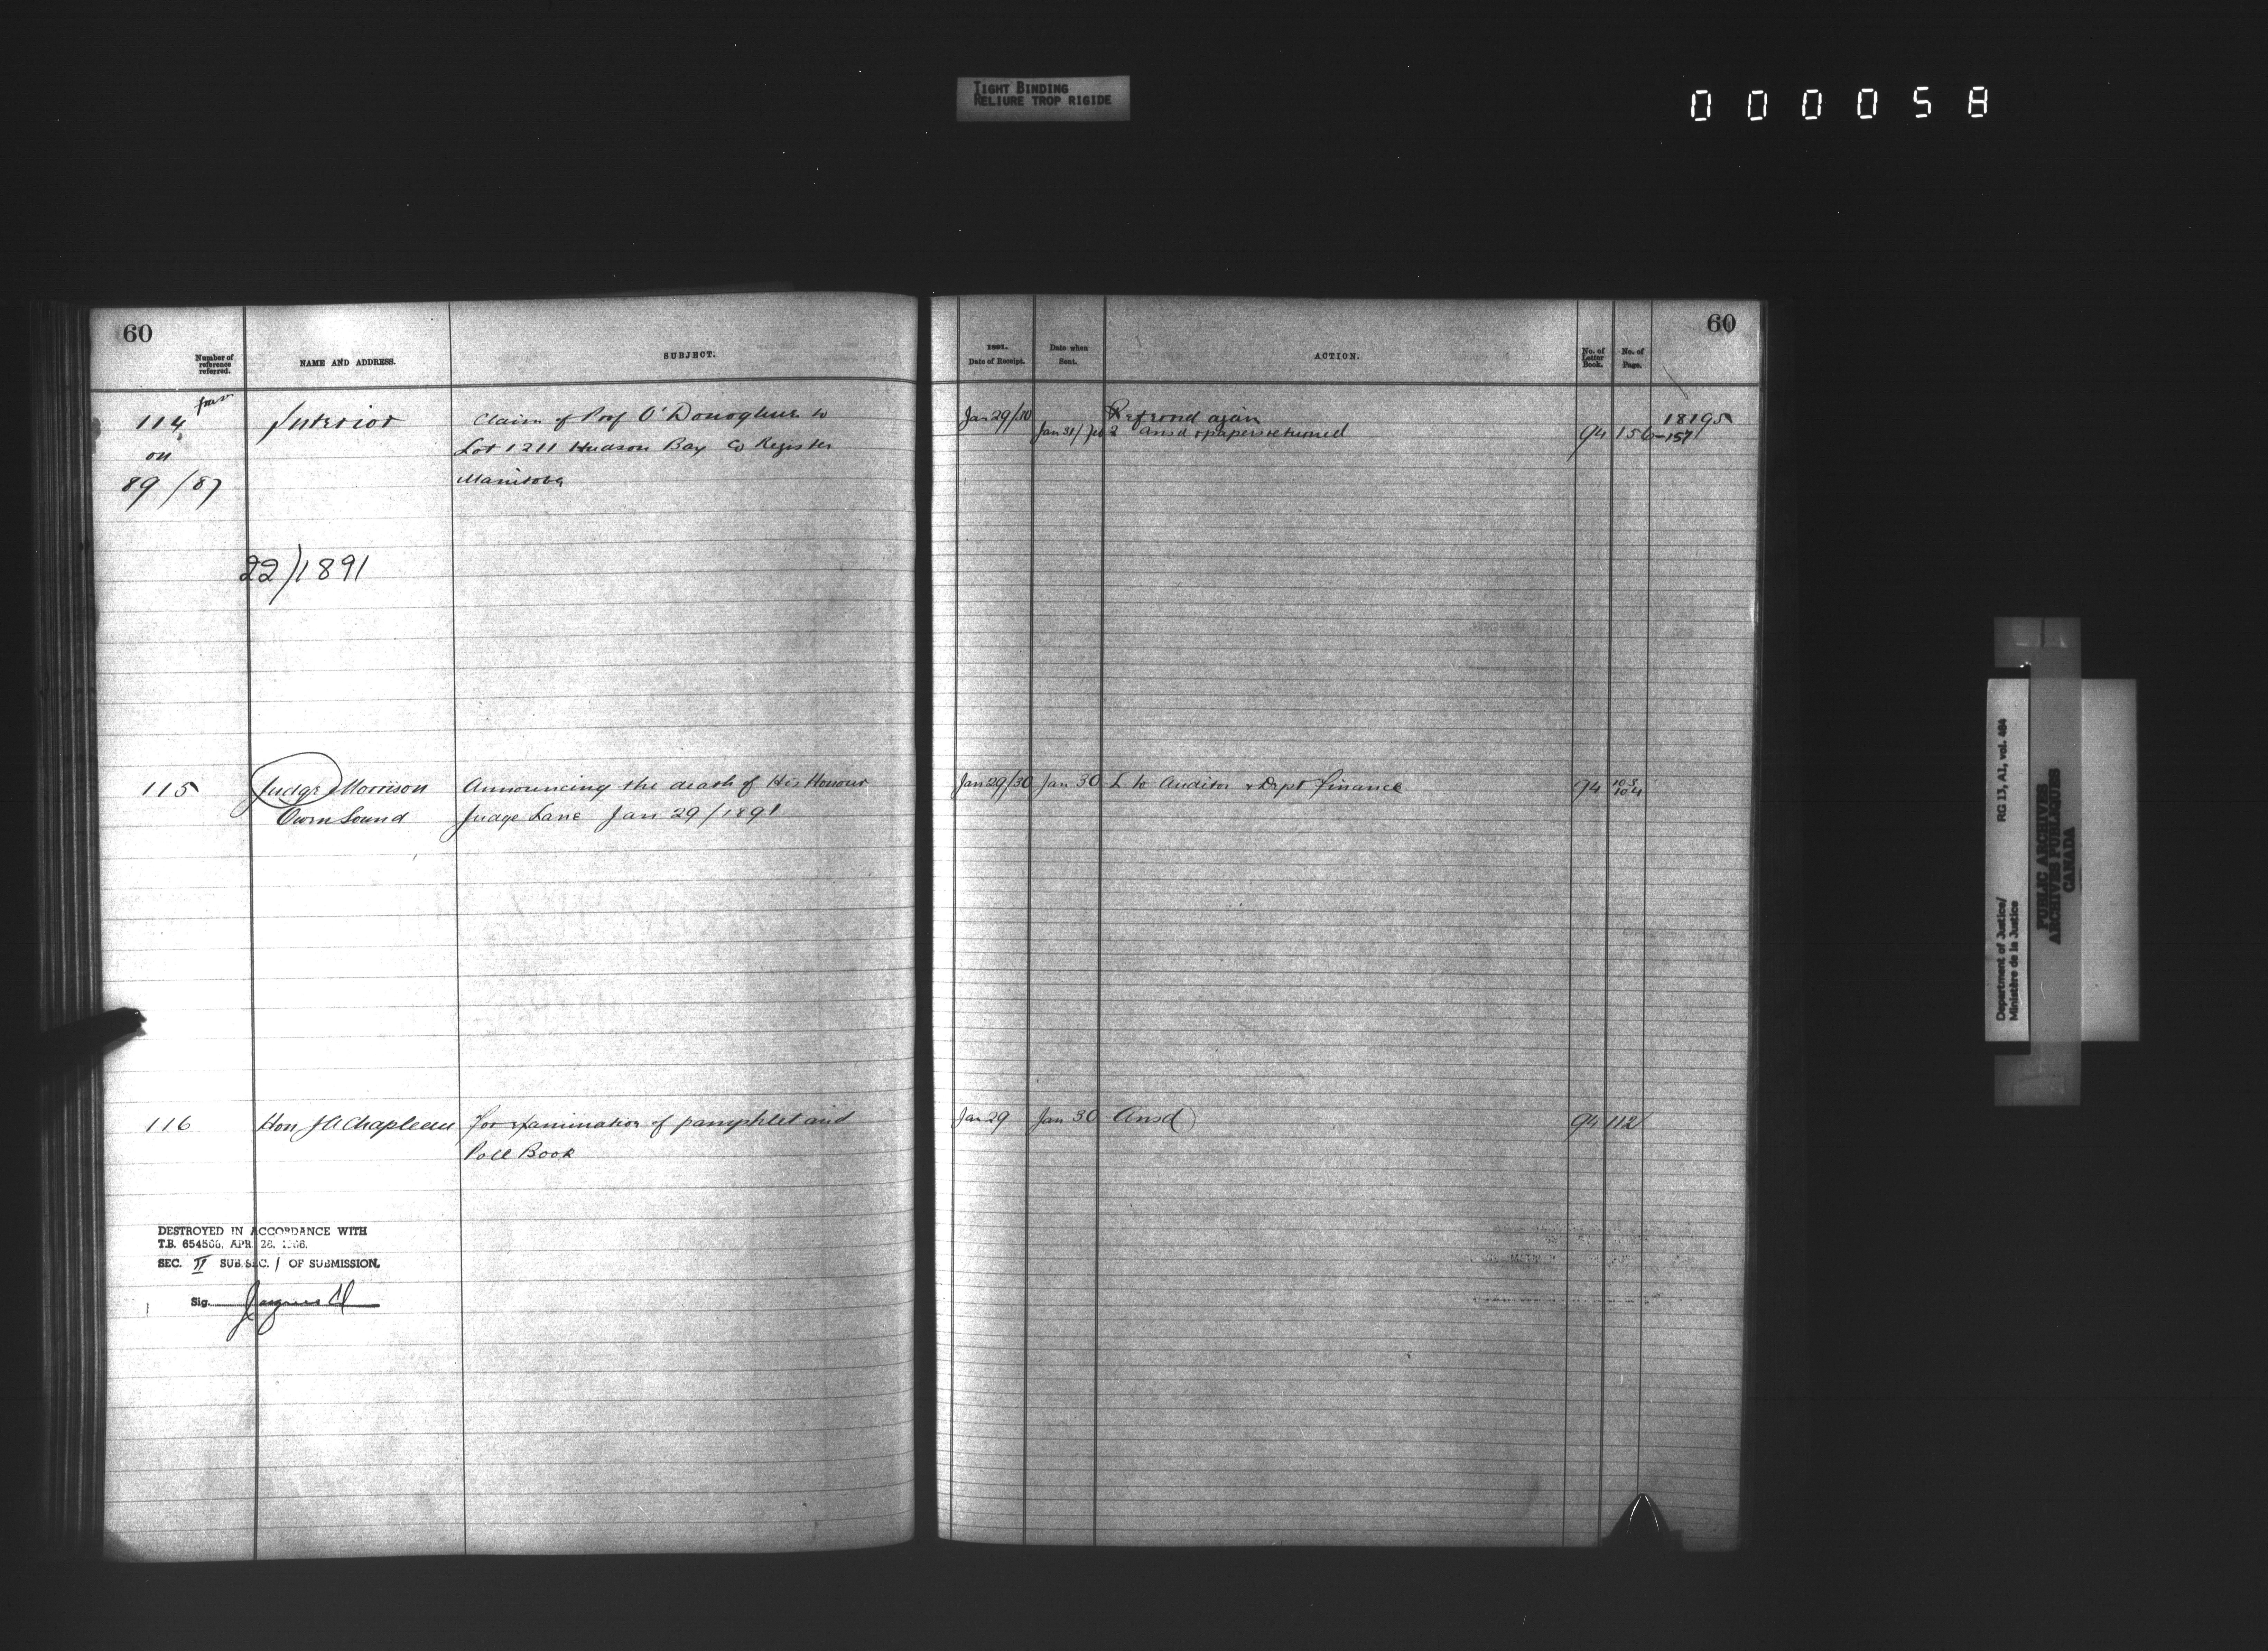 TIGHT BINDING
RELIURE TROP RIGIDE
000058
60
Number of reference referred.
NAME AND ADDRESS.
SUBJECT.
1891.
Date of Receipt.
Date when Sent.
ACTION.
No. of Letter Book.
No. of Page.
60
114
on
89/87
Interior
Claim of Prof O'Donoghue to
Lot 1211 Hudson Bay Co Register
Manitoba
Jan 29/30
Refered again
Jan 31/Feb 2 ansd & papers returned
94
156-157
18195
22/1891
115
Judge Morrison
Owen Sound
Announcing the death of His Honour
Judge Lane Jan 29/1891
Jan 29/30
Jan 30
L to Auditor & Dept Finance
94
103
104
116
Hon J A Chapleau
for examination of pamphlet and
Poll Book
Jan 29
Jan 30
Ansd
94
112
DESTROYED IN ACCORDANCE WITH
T.B. 654566, APR. 28, 1966.
SEC. II SUB. SEC. 1 OF SUBMISSION.
Sig.
Department of Justice/
Ministère de la Justice
RG 13, A1, vol. 484
PUBLIC ARCHIVES
ARCHIVES PUBLIQUES
CANADA